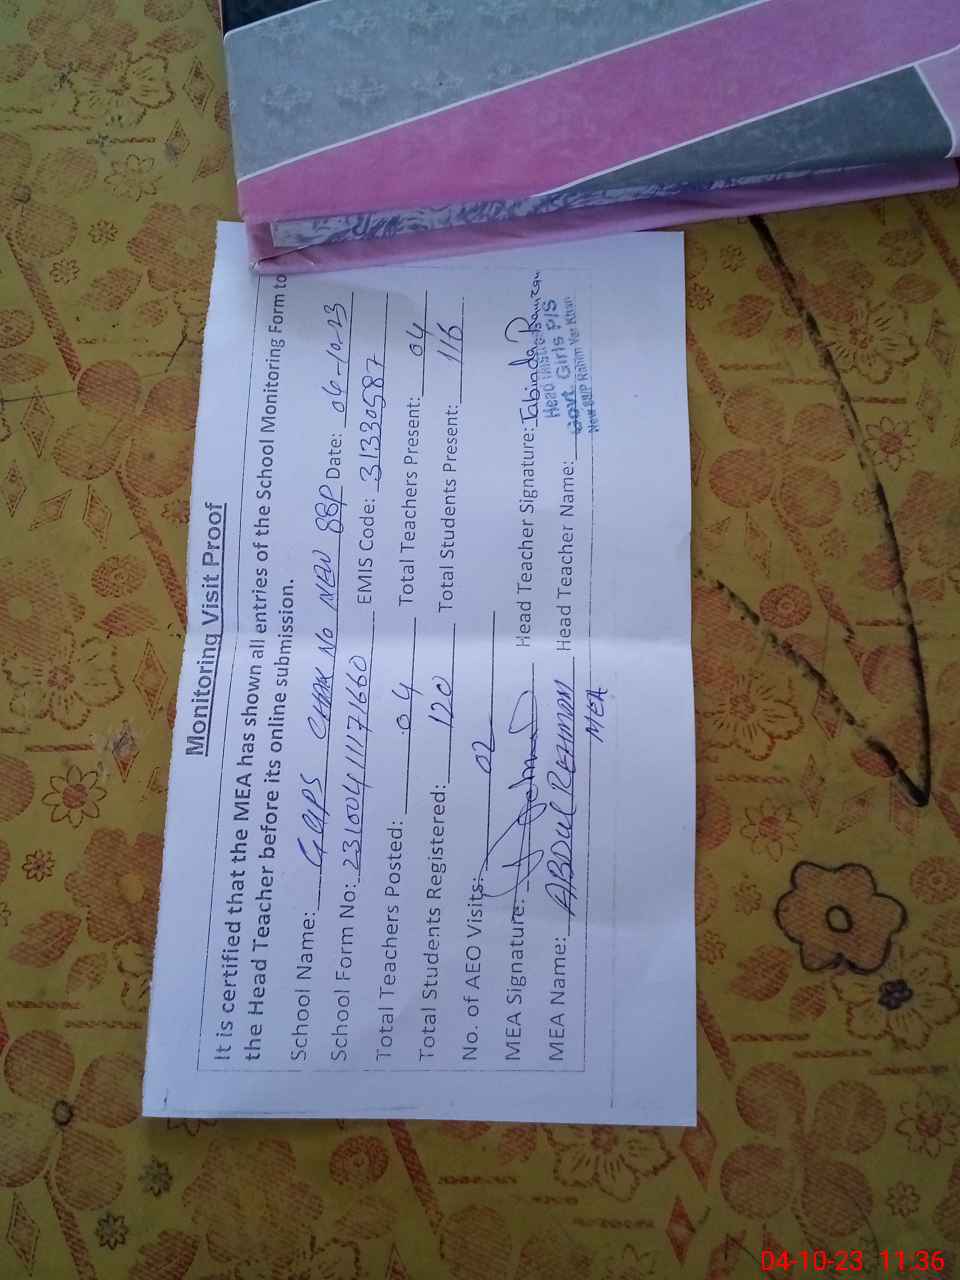 Monitoring Visit Proof
It is certified that the MEA has shown all entries of the School Monitoring Form to
the Head Teacher before its online submission.
School Name: GGPS CHAK No NEW 88P Date: 04-10-23
School Form No: 231004111171660 EMIS Code: 31330587
Total Teachers Posted: 04 Total Teachers Present: 04
Total Students Registered: 120 Total Students Present: 116
No. of AEO Visits: 02
MEA Signature: Head Teacher Signature: Tabinda Ramzan
MEA Name: ABDUL REHMAN Head Teacher Name:
MEA
Head Mistress
Govt. Girls P/S
New 88/P Rahim Yar Khan
04-10-23 11:36